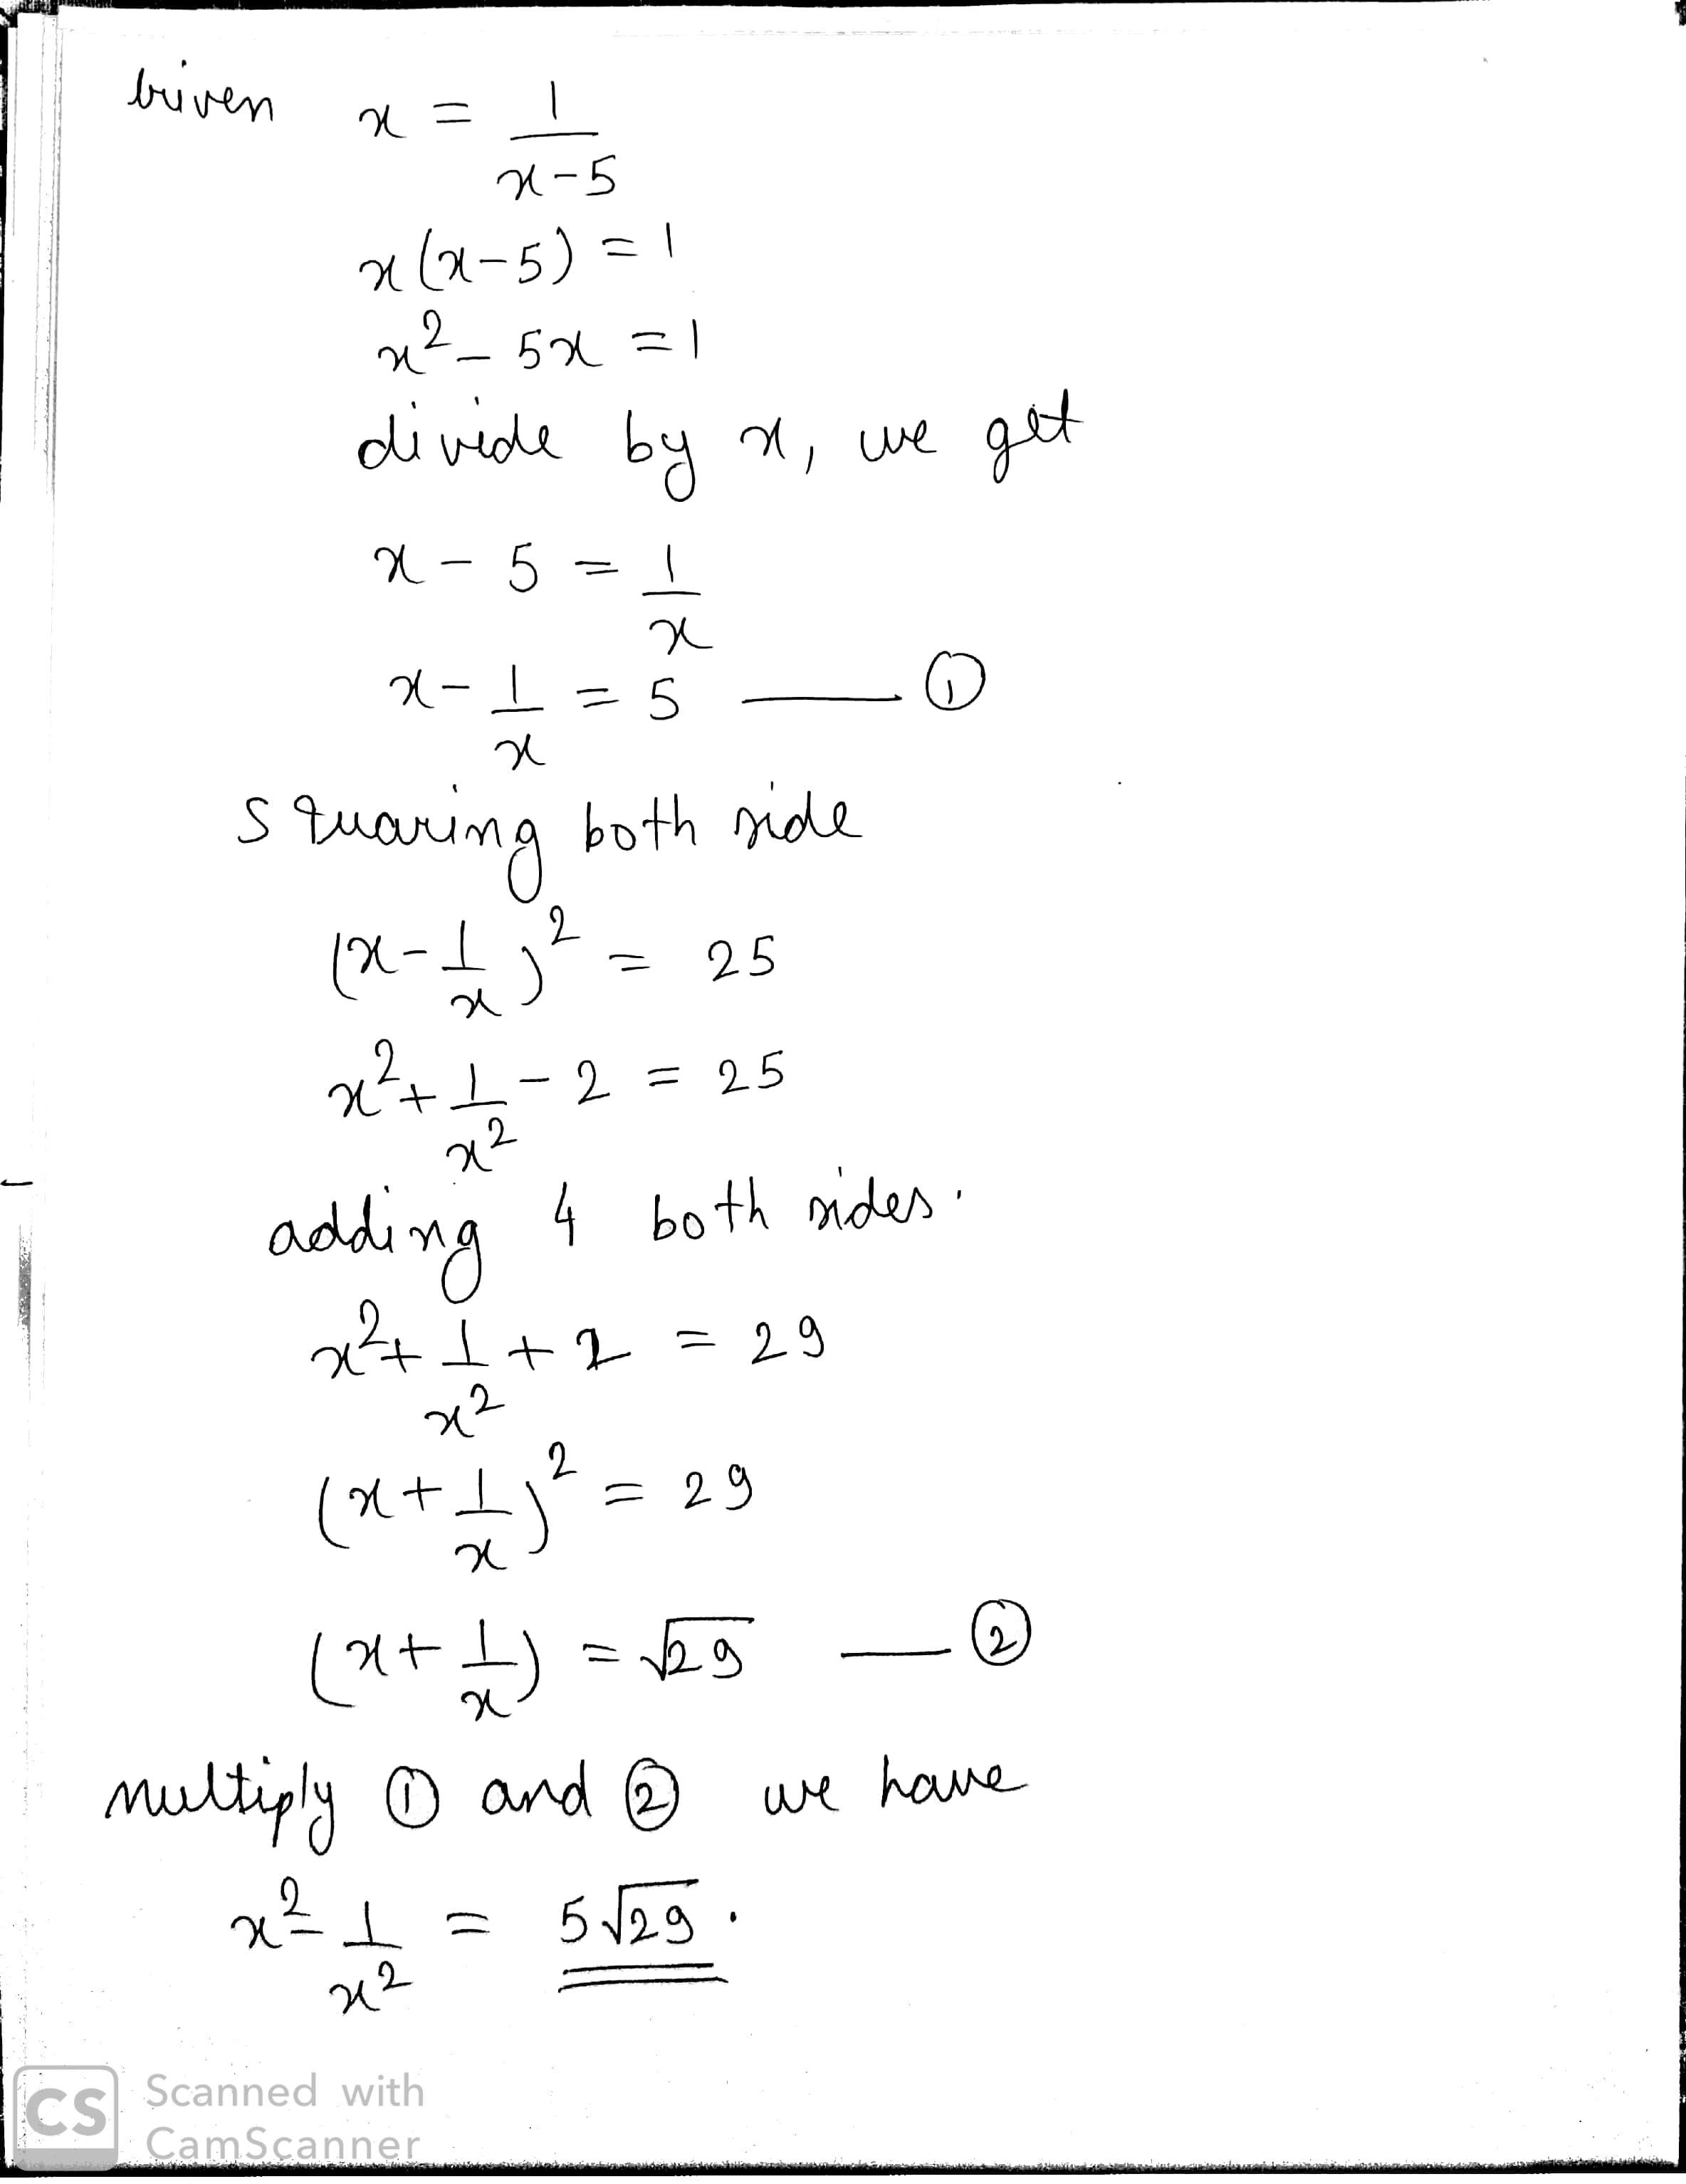 Given x = 1/(x-5)
x(x-5) = 1
x² - 5x = 1
divide by x, we get
x - 5 = 1/x
x - 1/x = 5 —— ①
squaring both side
(x - 1/x)² = 25
x² + 1/x² - 2 = 25
adding 4 both sides.
x² + 1/x² + 2 = 29
(x + 1/x)² = 29
(x + 1/x) = √29 —— ②
multiply ① and ② we have
x² - 1/x² = 5√29.
CS Scanned with
CamScanner